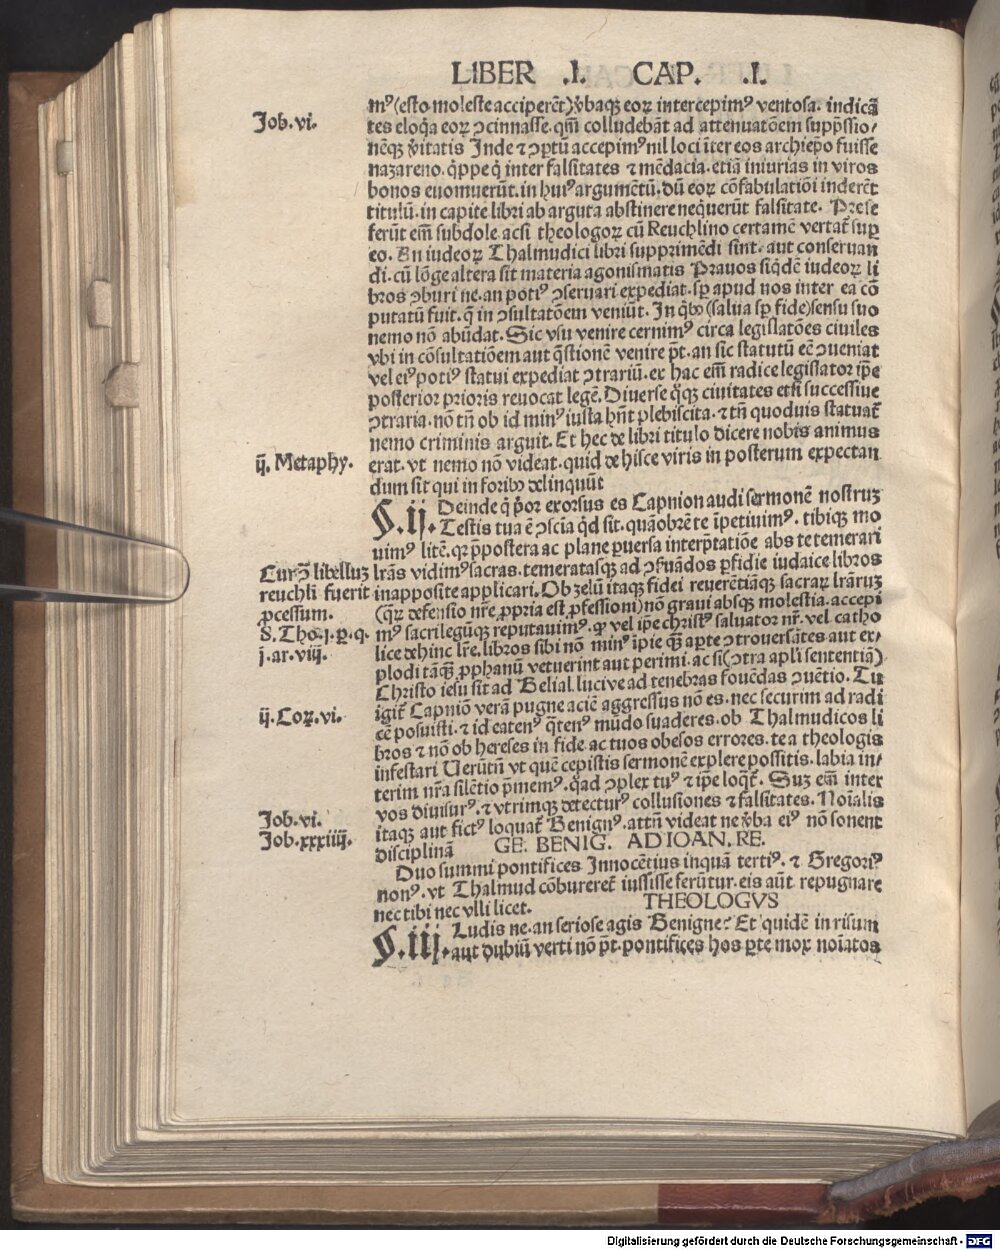 LIBER .I. CAP. .I.
mꝰ(esto moleste acciperēt)v̄baqꝫ eoꝝ intercepimꝰ ventosa. indicā
Job.vi.
tes eloq̄a eoꝝ ↄcinnasse. qm̄ colludebāt ad attenuatōem supp̄ssio/
nēqꝫ v̄itatis Inde ⁊ ↄptū accepimꝰ nil loci īter eos archiep̄o fuisse
nazareno. q̄ppe q̄ inter falsitates ⁊ mēdacia. etiā iniurias in viros
bonos euomuerūt. in huiꝰ argumētū. dū eoꝝ cōfabulatiōi inderēt
titulū. in capite libri ab arguta abstinere neq̄uerūt falsitate. Prese
ferūt em̄ subdole acsi theologoꝝ cū Reuchlino certamē vertat̄ suꝑ
eo. An iudeoꝝ Thalmudici libri supprimēdi sint. aut conseruan
di. cū lōge altera sit materia agonismatis Prauos siq̄dē iudeoꝝ li
bros ↄburi ne. an potiꝰ ↄseruari expediat. sp̄ apud nos inter ea cō
putatū fuit. q̄ in ↄsultatōem veniūt. In q̄bꝰ (salua sp̄ fide)sensu suo
nemo nō abūdat. Sic vsu venire cernimꝰ circa legislatōes ciuiles
vbi in cōsultatiōem aut q̄stionē venire p̄t. an sic statutū eē ↄueniat
vel eiꝰ potiꝰ statui expediat ↄtrariū. ex hac em̄ radice legislator ip̄e
posterior prioris reuocat legē. Diuerse q̄qꝫ ciuitates etsi successiue
ↄtraria. nō tn̄ ob id minꝰ iusta hn̄t plebiscita. ⁊ tn̄ quoduis statuat̄
nemo criminis arguit. Et hec de libri titulo dicere nobis animus
ij. Metaphy.
erat. vt nemo nō videat. quid de hisce viris in posterum expectan
dum sit qui in foribꝰ delinquūt
§.ij. Deinde q̄ prior exorsus es Capnion audi sermonē nostruꝫ
Testis tua ē ↄscīa q̄d sit. quāobrē te īpetiuimꝰ. tibiqꝫ mo
uimꝰ litē. qꝛ p̄postera ac plane ꝑuersa interp̄tatiōe abs te temerari
Cur libelluꝫ
lr̄as vidimꝰ sacras. temeratasqꝫ ad ↄfuādos ꝑfidie iudaice libros
reuchli fuerit
inapposite applicari. Ob zelū itaqꝫ fidei reuerētiāqꝫ sacraꝝ lr̄aruꝫ
ꝓcessum.
(q̄ꝝ defensio nr̄e ꝓpria est ꝓfessioni) nō graui absqꝫ molestia. accepi
S. Tho.j.p.q.
mꝰ sacrilegūqꝫ reputauimꝰ. ꝙ vel ip̄e christꝰ saluator nr̄. vel catho
j.ar.viij.
lice dehinc lr̄e. libros sibi nō minꝰ īpie q̄ꝫ aꝑte ↄtrouersātes aut ex/
plodi tāq̄ꝫ ꝓphanū vetuerint aut perimi. ac si (ↄtra apl̄i sententiā)
Christo iesu sit ad Belial. luciue ad tenebras fouēdas ↄuētio. Tu
ij. Coꝝ. vi.
igit̄ Capniō verā pugne aciē aggressus nō es. nec securim ad radi
cē posuisti. ⁊ id eatenꝰ q̄tenꝰ mūdo suaderes. ob Thalmudicos li
bros ⁊ nō ob hereses in fide. ac tuos obesos errores. te a theologis
infestari Uerūtn̄ vt quē cepistis sermonē explere possitis. labia in/
terim nr̄a silētio p̄memꝰ. q̄ad ↄplex tuꝰ ⁊ ip̄e loq̄t̄. Suꝫ em̄ inter
vos diuisurꝰ. ⁊ vtrimqꝫ detecturꝰ collusiones ⁊ falsitates. Noīalis
Job.vi.
itaqꝫ aut fictꝰ loquat̄ Benignꝰ. attn̄ videat ne v̄ba eiꝰ nō sonent
Job.xxxiiij.
disciplinā GE. BENIG. AD IOAN. RE.
Duo summi pontifices Innocētius inquā tertiꝰ. ⁊ Gregoriꝰ
nonꝰ. vt Thalmud cōbureret̄ iussisse ferūtur. eis aūt repugnare
nec tibi nec vlli licet. THEOLOGVS
§.iij. Ludis ne. an seriose agis Benigne? Et quidē in risum
aut dubiū verti nō p̄t. pontifices hos ꝑte mox noīatos
Digitalisierung gefördert durch die Deutsche Forschungsgemeinschaft - DFG